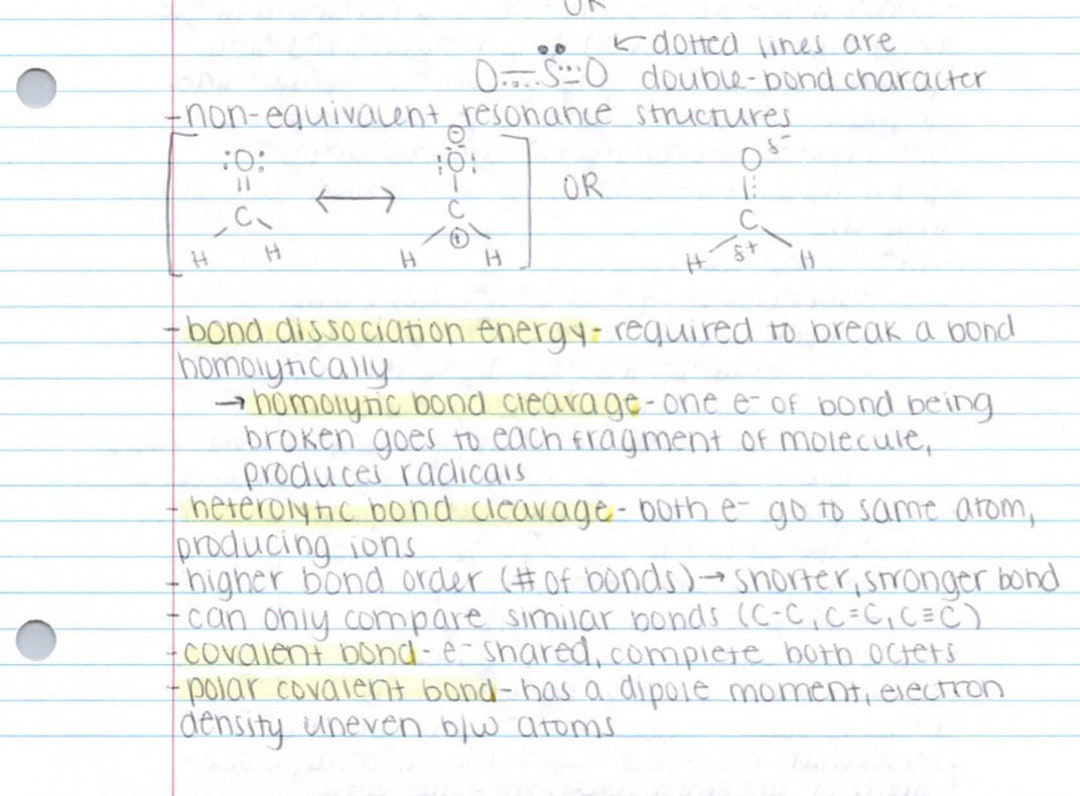 OR
•• ← dotted lines are
O=S=O double-bond character
-non-equivalent resonance structures
:O: ⊖ :O: OR O δ-
C ↔ C C
H H H ⊕ H H δ+ H
-bond dissociation energy- required to break a bond
homolytically
→ homolytic bond cleavage - one e- of bond being
broken goes to each fragment of molecule,
produces radicals
- heterolytic bond cleavage - both e- go to same atom,
producing ions
-higher bond order (# of bonds) → shorter, stronger bond
-can only compare similar bonds (C-C, C=C, C≡C)
-covalent bond- e- shared, complete both octets
-polar covalent bond-has a dipole moment, electron
density uneven b/w atoms